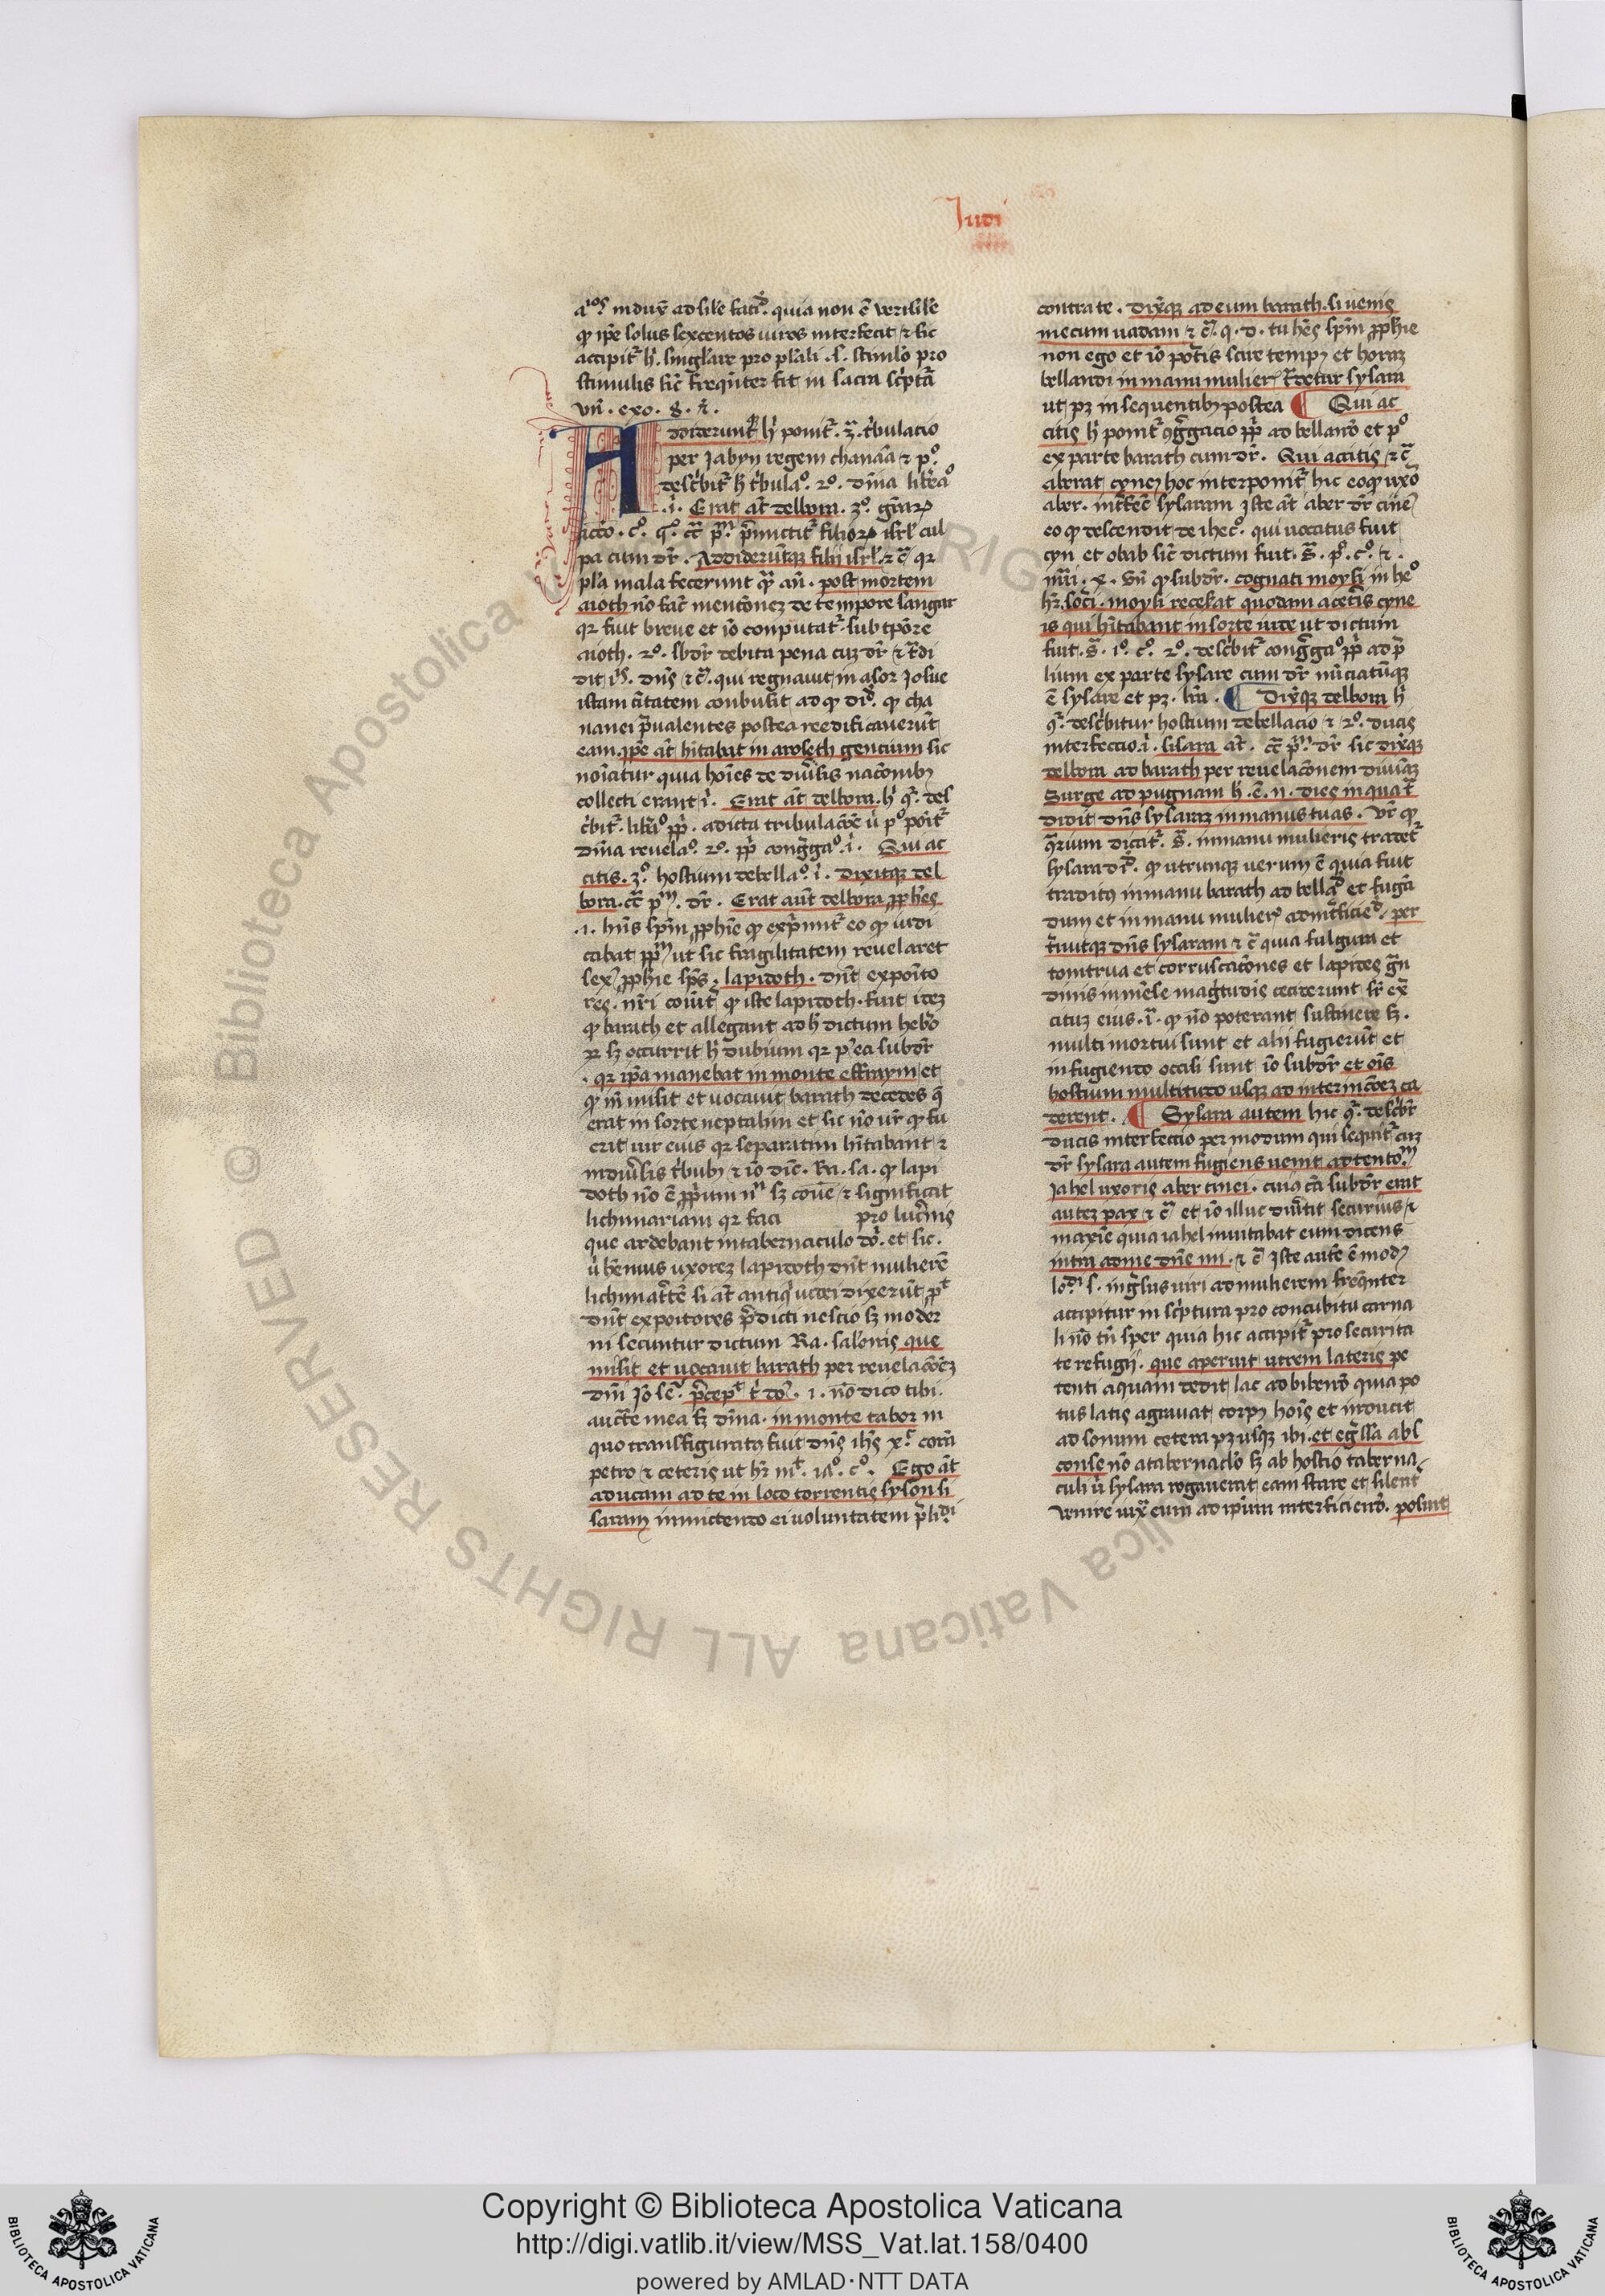 Judi
a^ios induxit ad sile faciendum quia non ē verisile
qp ipe solus sexcentos viros interfecit et sic
accipitr hic singlare pro plali .s. stimulo pro
stimulis sic frequēter fit in sacra scptā
vn̄. exo. 8. ī.
Addiderunt h ponitr. 3ā. tbulacio
per Jabyn regem chanaā et p°.
descbitr h tbula°. 2°. dīna libea°
.i. Erat at delbora. 3°. grar
actio. c°. q°. cc pm. pmictitr filior isrl cul
pa cum dr. Addiderūtque filii isrl et c qr
pla mala fecerunt q an. post mortem
aioth nō fac mencōnez de tempore sangar
qr fuit breve et iō conputatr sub tpōre
aioth. 2°. sbdr debita pena cuz dr et tdi
dit is. dns et c. qui regnavit in asor Josue
istam civitatem conbusit ad qd dd. qp cha
nanei pvalentes postea reedificaverūt
eam. ipe at hitabat in aroseth gencium sic
noiatur quia hoies de dusis nacōnibus
collecti erant i. Erat at delbora. h q. des
cbitr. libao pp. a dicta tribulacōe u p° ponitr
dīna revelao. 2°. pp congga°. i. Qui ac
citis. 3°. hostium debella°. i. dixitque del
bora. cc pm. dr. Erat aut delbora pphes
.i. hns spm pphie qp exprimitr eo qp iudi
cabat ppm ut sic fragilitatem revelaret
sex pphie sps. lapidoth. dnt exposito
res. nri coiter qp iste lapidoth fuit idez
qp barath et allegant ad h dictum hebro
r sz occurrit h dubium qr p ea subdr
. qr ipa manebat in monte effraym et
qp in misit et vocavit barath de cedes q
erat in sorte neptalim et sic nō vr qp fu
erit vir eius qr separatim hitabant et
in dusis tbubus et iō dic. Ra. sa. qp lapi
doth nō ē pprium nn sz coue et significat
lichinariam qr faci pro lucnis
que ardebant in tabernaculo do. et sic.
u hemus uxorez lapidoth dnt mulierē
lichinatcē si at antiqui ucce dixerūt pt
dnt expoitores pdicti nescio sz moder
ni secuntur dictum Ra. salonis que
misit et vocavit barath per revelacōez
dni Jo se. pcep t do. i. nō dico tibi.
aucte mea sz dina. in monte tabor in
quo transfiguratus fuit dns ihs x. corā
petro et ceteris ut hr mt. 17°. c°. Ego at
aducam ad te in loco torrentis syson si
saram inmictendo ei voluntatem plidi
contra te. dixque ad eum barath. si venis
mecum vadam et c. q. d. tu hes spm pphie
non ego et iō potis scire tempus et horaz
bellandi in manu mulieris tdetur sysara
ut pz in sequentibus postea ¶ Qui ac
citis h ponitr oggacio pp ad bellandum et p°
ex parte barath cum dr. Qui accitis et c
aberat cyneus hoc interponitr hic eo qp uxo
aber. intfec sysaram Iste at aber dr cine
eo qp descendit de ihec°. qui vocatus fuit
cyn et obab sic dictum fuit. s. p°. c°. et.
nui. x. vn qp subdr. cognati moysi in he°
hr. soci. moysi recesat quodam a cetis cyne
is qui hitabant in sorte iude ut dictum
fuit. s. i°. c°. 2°. descbitr congga° pp ad p
lium ex parte sysare cum dr nūciatūque
ē sysare et pz. lra. ¶ Dixque delbora h
q. describitur hostium debellacio et 2°. ducis
interfeccio. i. sisara at. cc pm. dr sic dixque
delbora ad barath per revelacōnem divinaz
Surge ad pugnam h. ē. n. dies in qua t
didit dns sysaraz in manus tuas. vr qp
qrium dicitr. s. in manu mulieris tradetr
sysara dd. qp utrunque verum ē quia fuit
traditus in manu barath ad bellandum et fugan
dum et in manu mulieris ad intficiendum. per
tuitque dns sysaram et c quia fulgura et
tonitrua et corruscacōnes et lapides gn
dinis in mense magitudis ceciderunt sr ex
citum eius. i. qp nō poterant sustinere sz.
multi mortui sunt et alii fugierūt et
in fugiendo occisi sunt iō subdr et ois
hostium multitudo usque ad internicōez ca
derent. ¶ Sysara autem hic q. descbr
ducis interfeccio per modum qui sequitr cuz
dr sysara autem fugiens venit ad tentom
Jahel uxoris aber cinei. cuius ca subdr erat
autez pax et c et iō illuc divtit securius et
maxie quia iahel invitabat eum dicens
intra ad me dne mi. et c Iste aute ē modus
lodi s. inglus viri ad mulierem frequter
accipitur in scptura pro concubitu carna
li nō tn sper quia hic accipitr pro securita
te refugii. que aperuit utrem lateris pe
tenti aquam dedit lac ad bibendum quia po
tus latis agravat corpus hois et inducit
ad sonum cetera pz usque ibi. et egssa abs
conse nō a tabernaclo sz ab hostio taberna
culi u sysara rogaverat eam stare et silent
venire iux eum ad ipum interficiendum. posuit
© Biblioteca Apostolica Vaticana ALL RIGHTS RESERVED
Copyright © Biblioteca Apostolica Vaticana
http://digi.vatlib.it/view/MSS_Vat.lat.158/0400
powered by AMLAD·NTT DATA
BIBLIOTECA APOSTOLICA VATICANA
BIBLIOTECA APOSTOLICA VATICANA